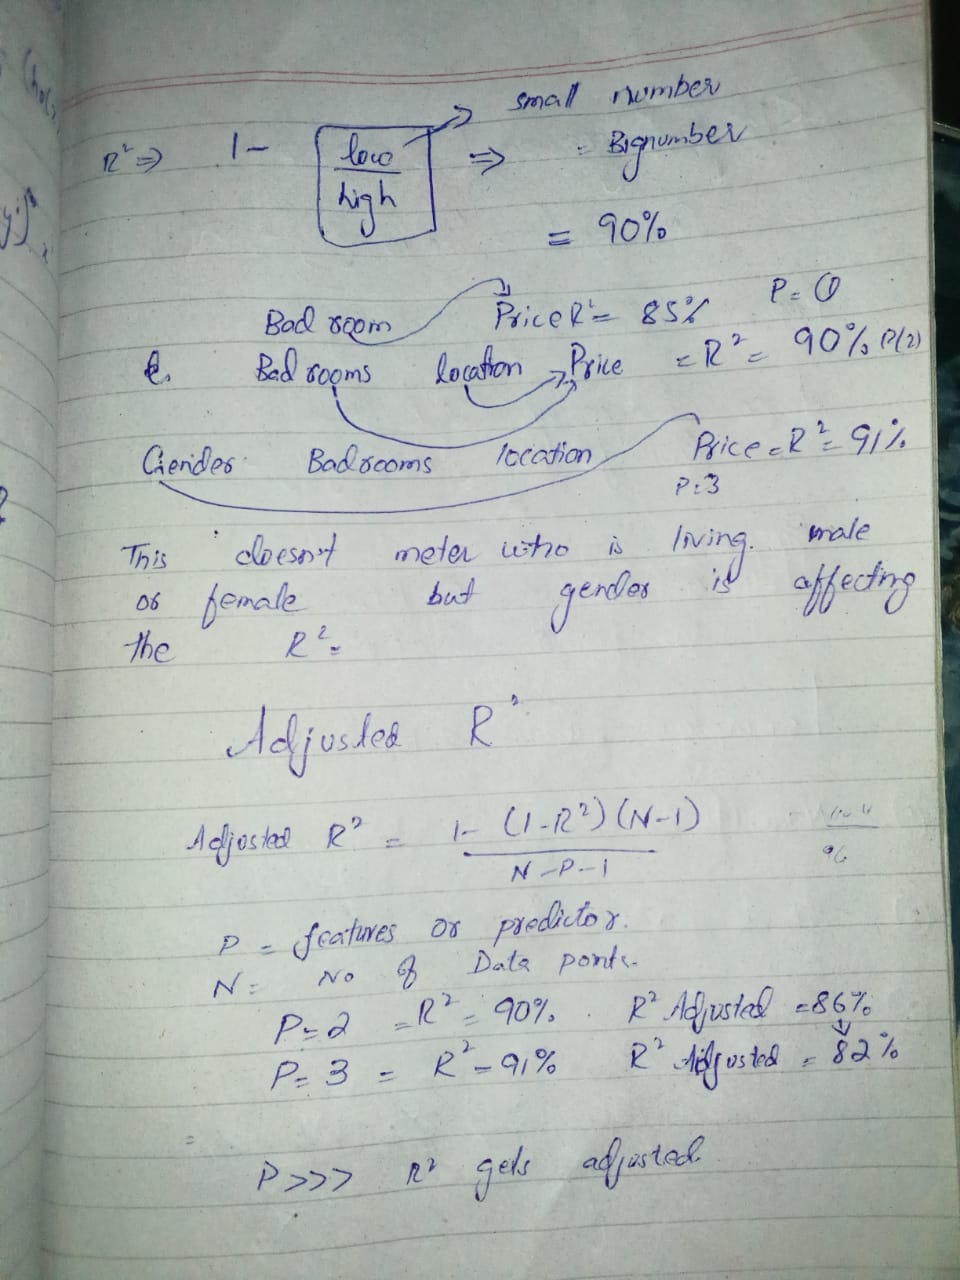 small number
R² ⇒ 1- low/high ⇒ = Bignumber
= 90%
Bad room Price R² = 85% P = 1
Bad rooms location Price = R² = 90% P(2)
Gender Bad rooms location Price = R² = 91%
P=3
This doesn't meter who is living. male
or female but gender is affecting
the R² =
Adjusted R²
Adjusted R² = 1- (1-R²)(N-1)
N-P-1
P = features or predictor.
N = No of Data points.
P=2 = R² = 90%. R² Adjusted =86%
P=3 = R² - 91% R² Adjusted = 82%
P>>> R² gets adjusted